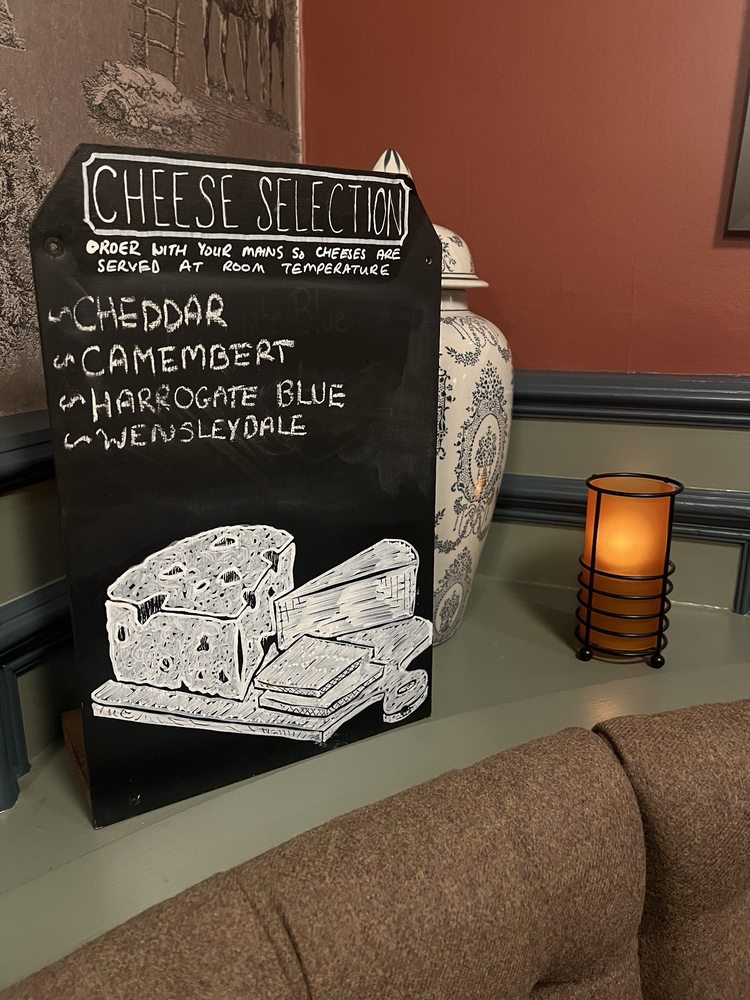 CHEESE SELECTION
ORDER WITH YOUR MAINS SO CHEESES ARE
SERVED AT ROOM TEMPERATURE
~CHEDDAR
~CAMEMBERT
~HARROGATE BLUE
~WENSLEYDALE